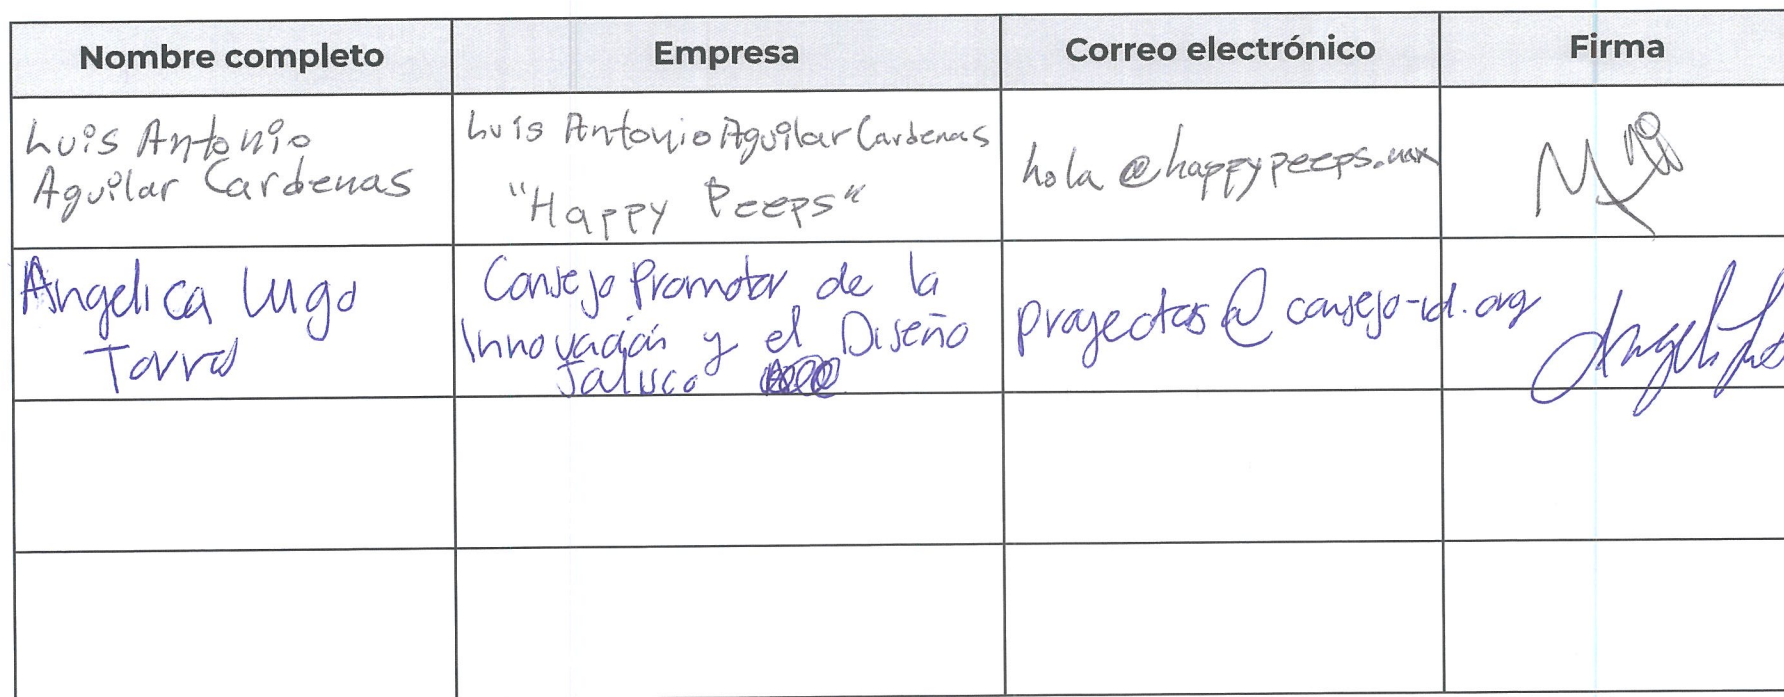 Nombre completo Empresa Correo electrónico Firma
Luis Antonio
Aguilar Cardenas
Luis Antonio Aguilar Cardenas
"Happy Peeps"
hola@happypeeps.mx
Angelica Lugo
Torres
Consejo Promotor de la
Innovación y el Diseño
Jalisco
proyectos@consejo-id.org